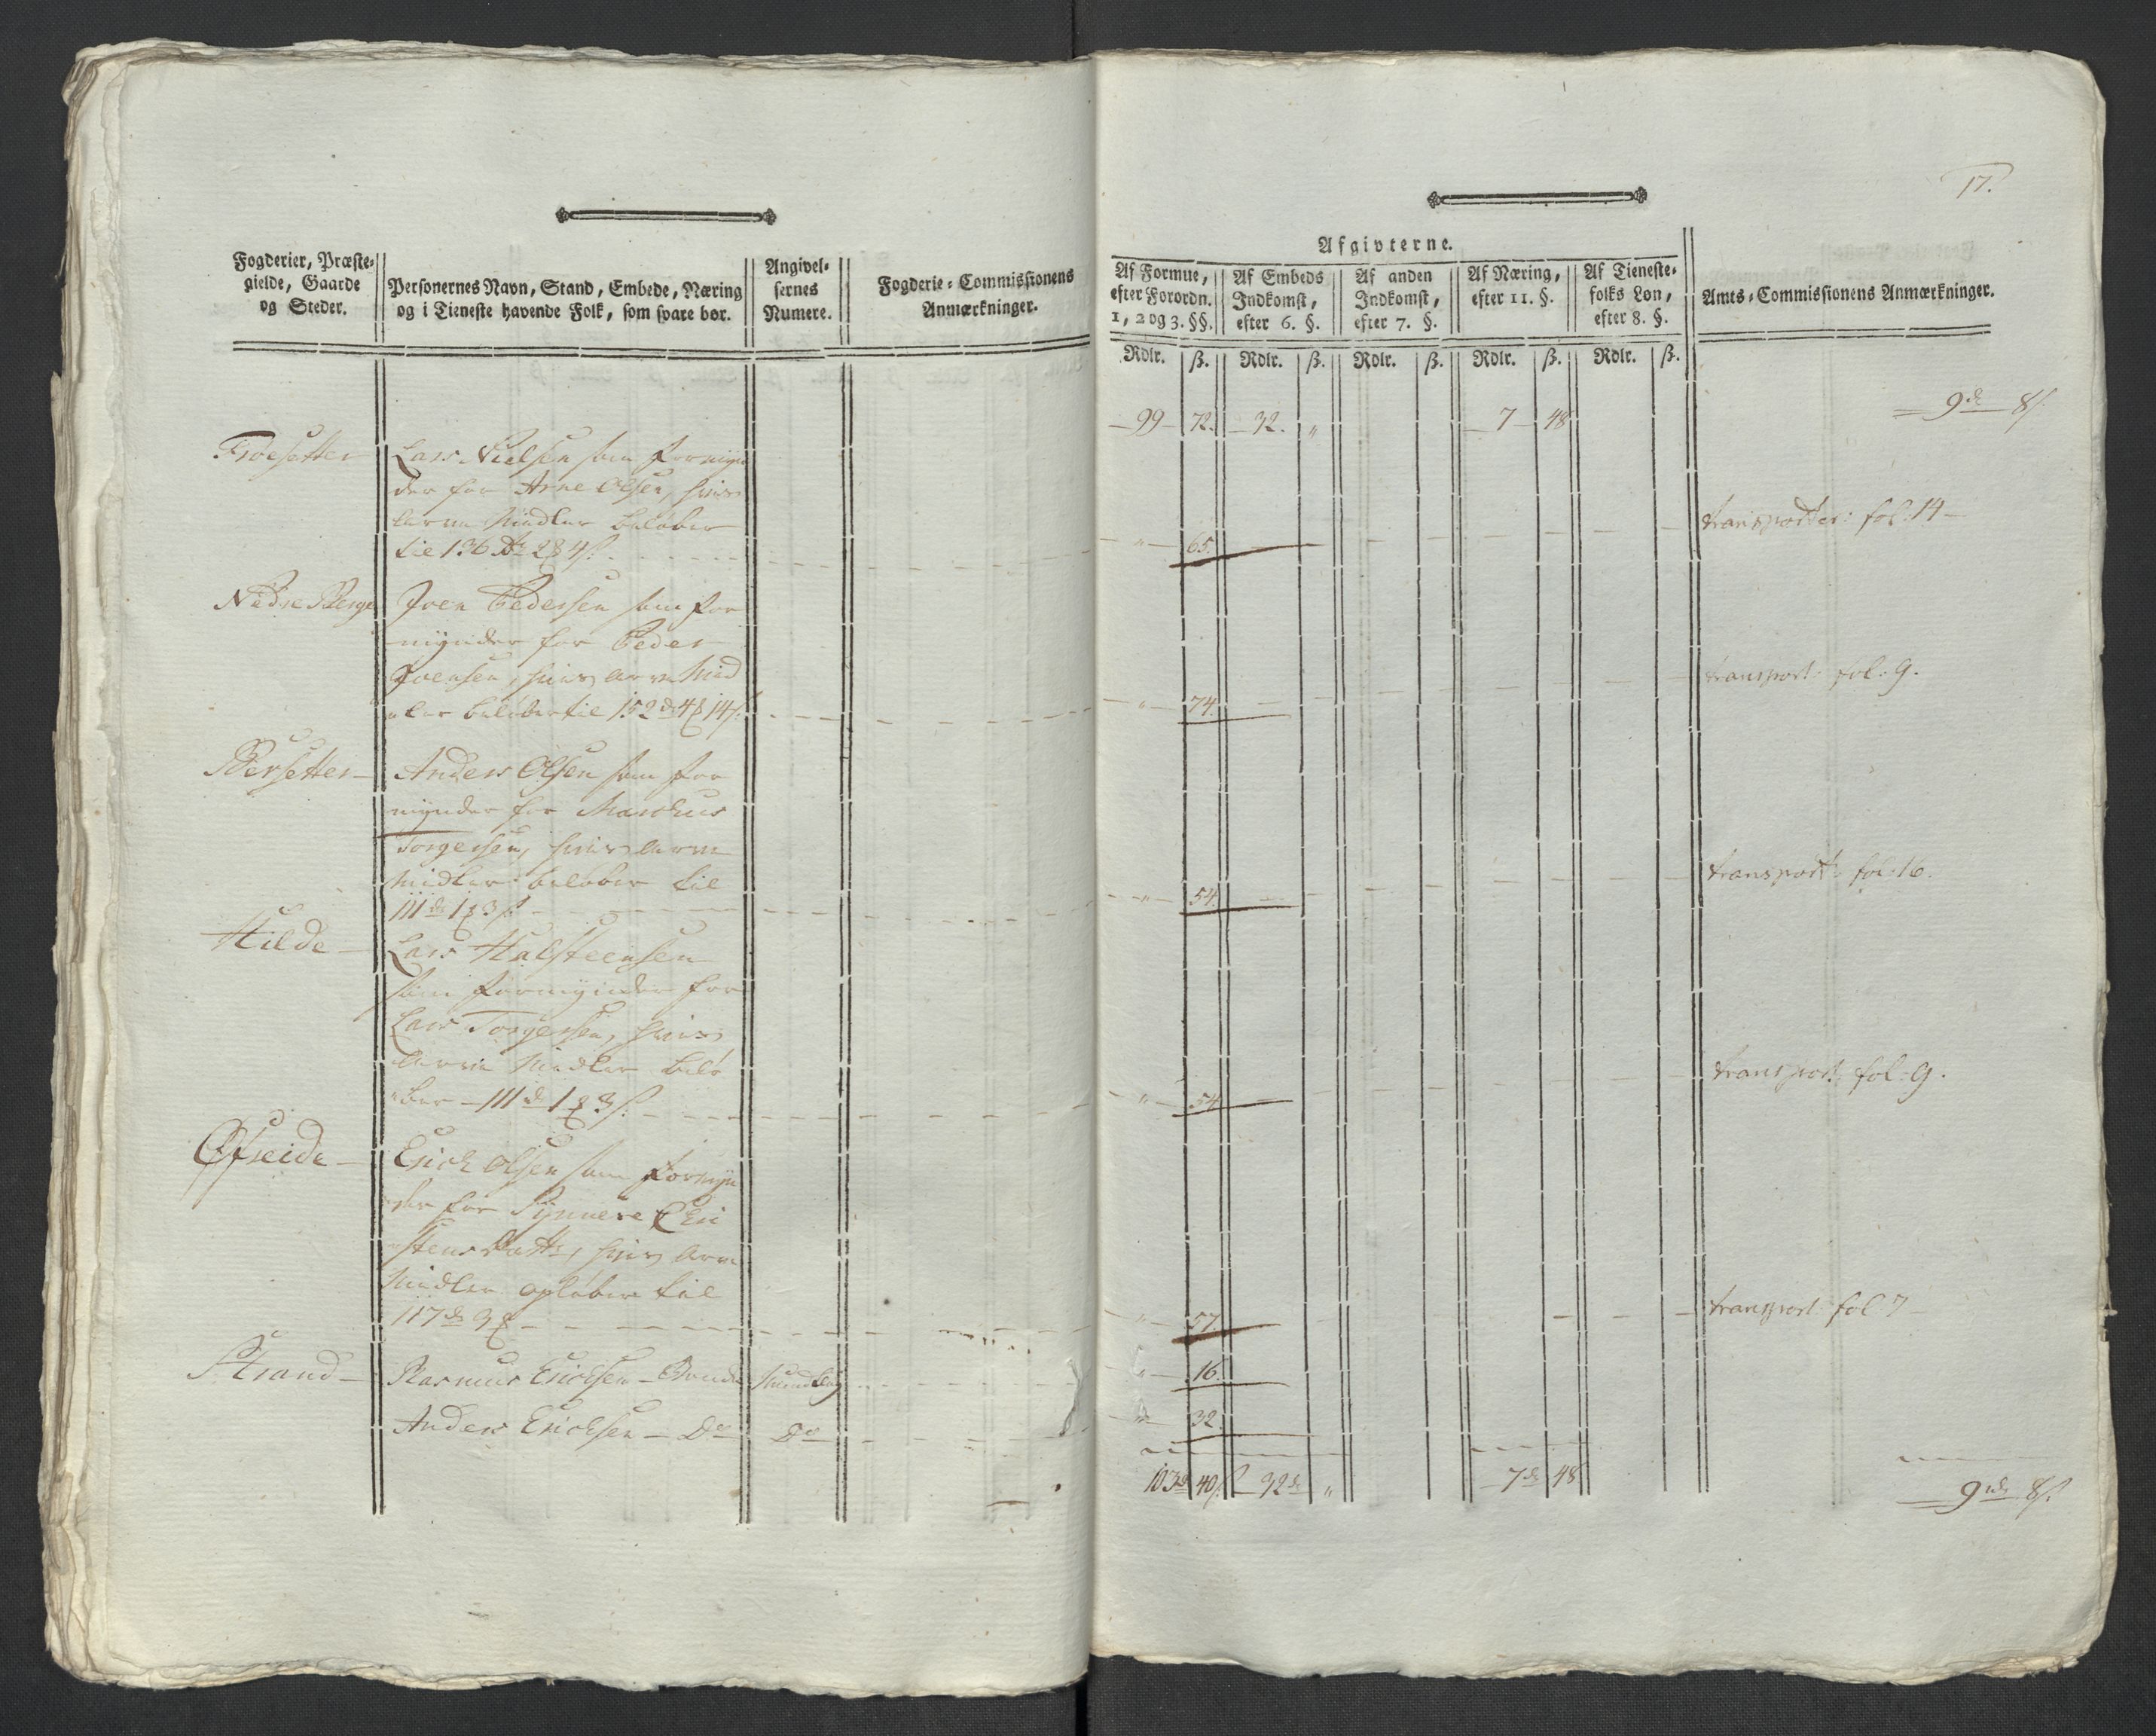 17.
Fogderier, Præste-
gielde, Gaarde
og Steder.
Personernes Navn, Stand, Embede, Næring
og i Tieneste havende Folk, som svare bør.
Angivel-
sernes
Numere.
Fogderie-Commissionens
Anmærkninger.
Afgivterne.
Af Formue,
efter Forordn.
1, 2 og 3. §§.
Af Embeds
Indkomst,
efter 6. §.
Af anden
Indkomst,
efter 7. §.
Af Næring,
efter 11. §.
Af Tieneste-
folks Løn,
efter 8. §.
Amts-Commissionens Anmærkninger.
Rdlr. ß. Rdlr. ß. Rdlr. ß. Rdlr. ß. Rdlr. ß.
99 72. 32. „ 7 48 9 8ß.
Lars Nielsen som formyn
der for Arne Olsen, hvis
arve Midler beløber
til 136 2 4ß. „ 65. fol: 14
Nedre Berge Joen Pedersen som for
mynder for Peder
Joensen, hvis arve Mid
ler beløber til 152 4 14ß. „ 74. transport: fol: 9.
Bersetter Anders Olsen som for
mynder for Marchus
Torgersen, hvis arve
Midler beløber til
111 1 3ß. „ 54. transport: fol: 16.
Hilde Lars Halsteensen
som formynder for
Lars Torgersen, hvis
arve Midler belø
ber 111 1 3ß. „ 54 transport: fol: 9.
Erick Olsen som formyn
der for Synneve
hvis arve
Midler opløber til
117 3 „ 57. transport: fol: 7
Strand Rasmus Ericksen Bonde Mundtlig „ 16.
Anders Ericksen Do Do „ 32.
103 40ß. 32 „ 7 48 9 8ß.